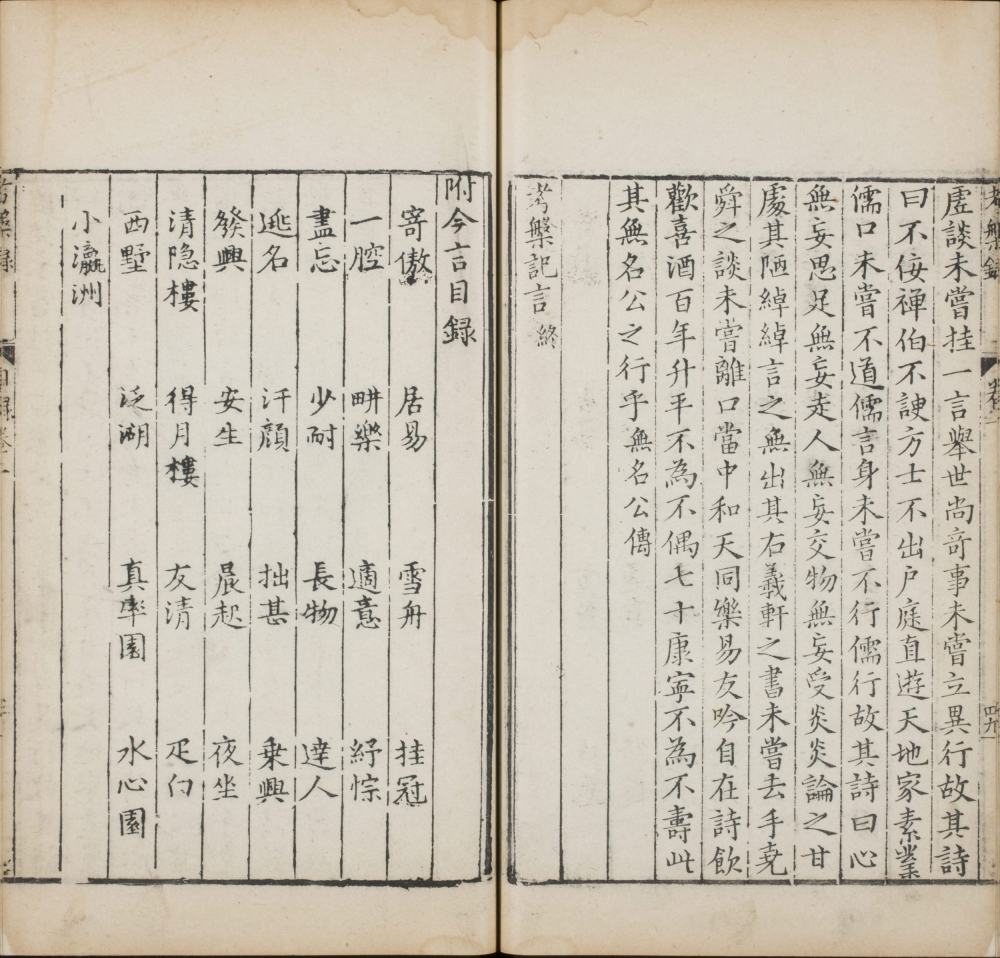 虛談未嘗挂一言舉世尚竒事未嘗立異行故其詩
曰不佞禪伯不諛方士不出户庭直遊天地家素業
儒口未嘗不道儒言身未嘗不行儒行故其詩曰心
無妄思足無妄走人無妄交物無妄受炎炎論之甘
處其陋綽綽言之無出其右羲軒之書未嘗去手堯
舜之談未嘗離口當中和天同樂易友吟自在詩飲
歡喜酒百年升平不為不偶七十康寧不為不壽此
其無名公之行乎無名公傳
考槃記言終
附今言目録
寄傲 居易 雪舟 挂冠
一腔 畊樂 適意 紓悰
盡忘 少耐 長物 達人
逃名 汗顔 拙甚 乗興
發興 安生 晨起 夜坐
清隐樓 得月樓 友清
西墅 泛湖 真率園 水心園
小瀛洲